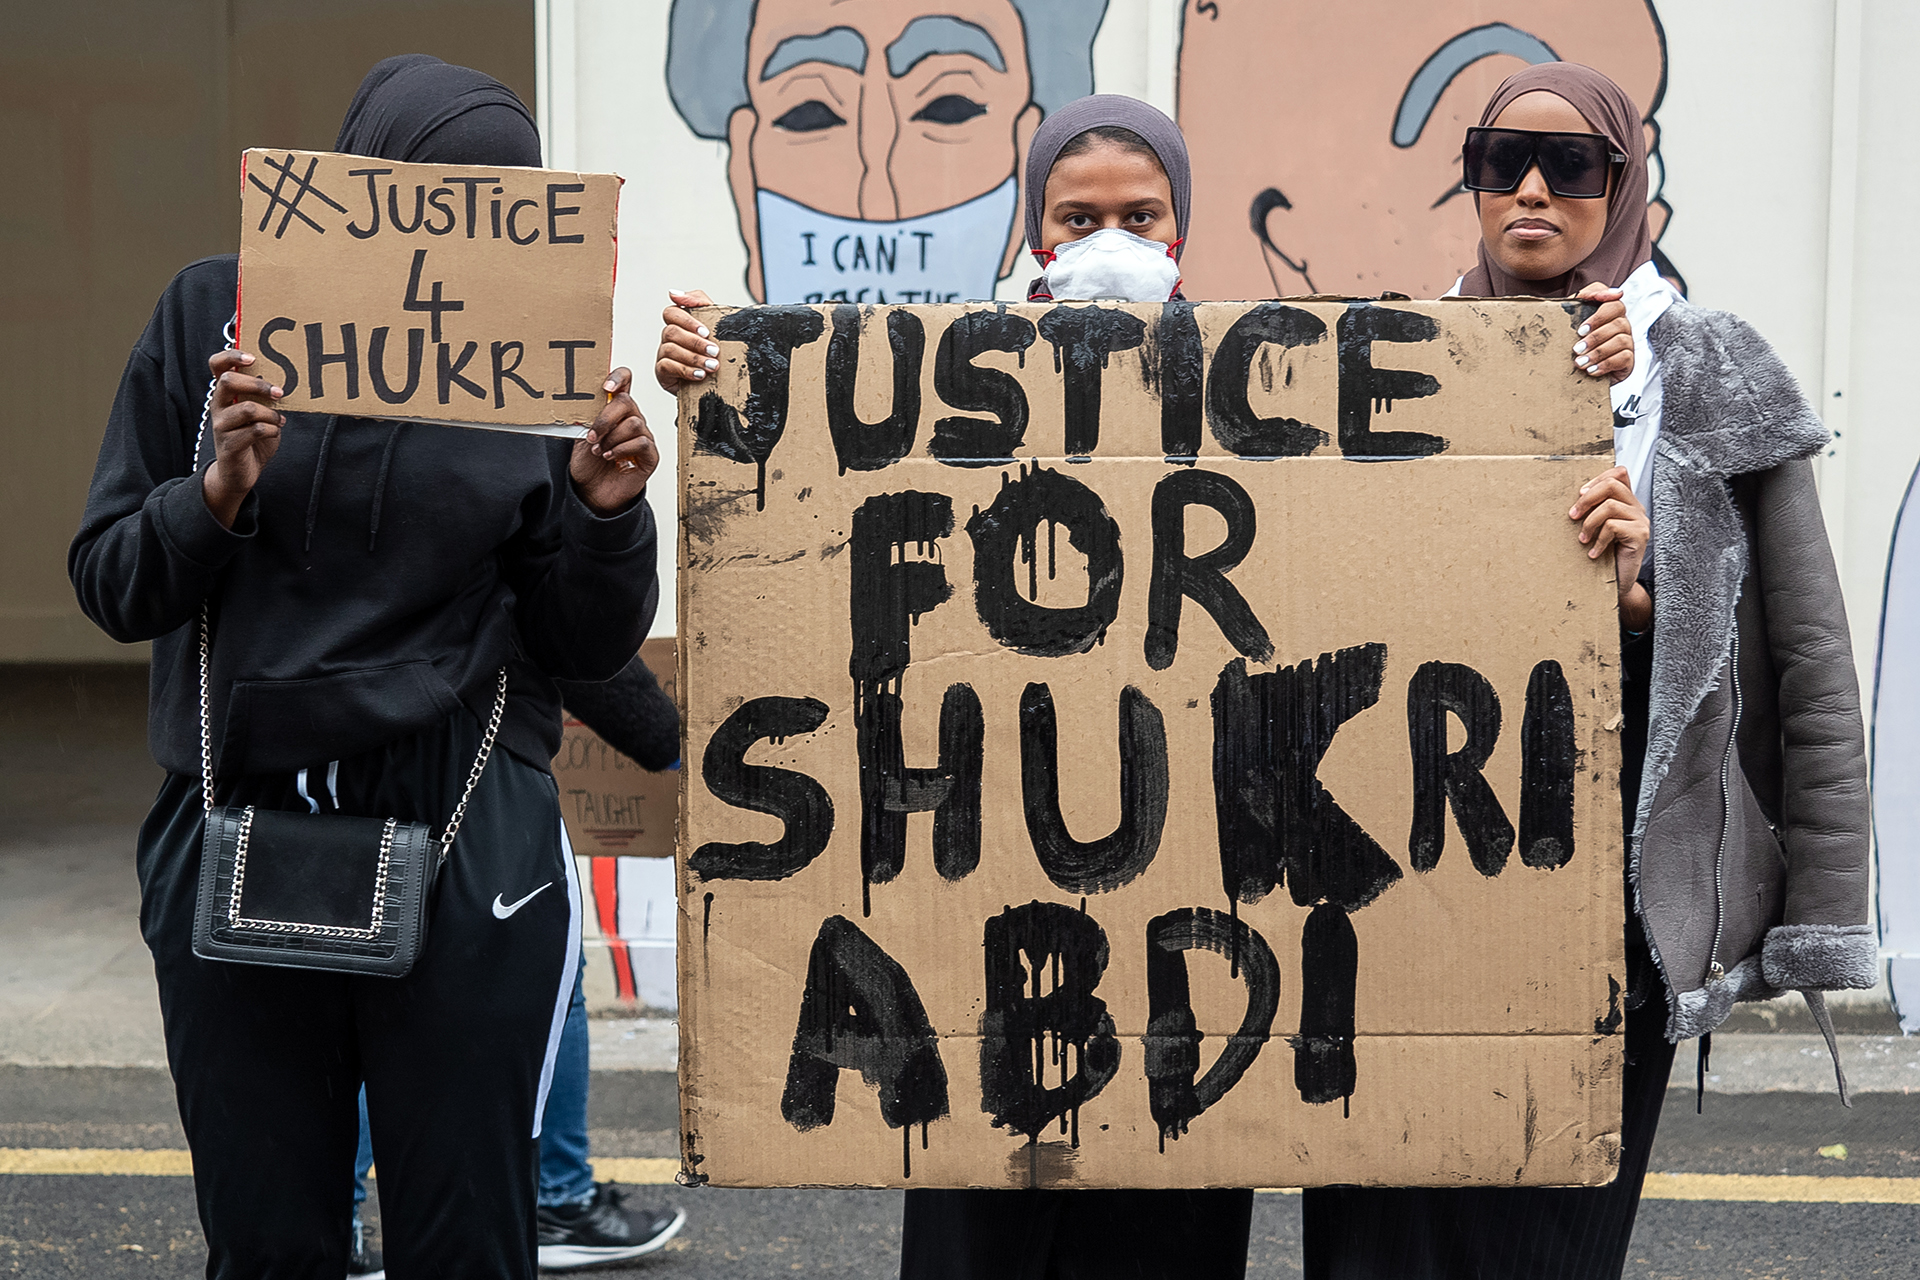 #JUSTICE
4
SHUKRI
I CAN'T
BREATHE
JUSTICE
FOR
SHUKRI
ABDI
TAUGHT